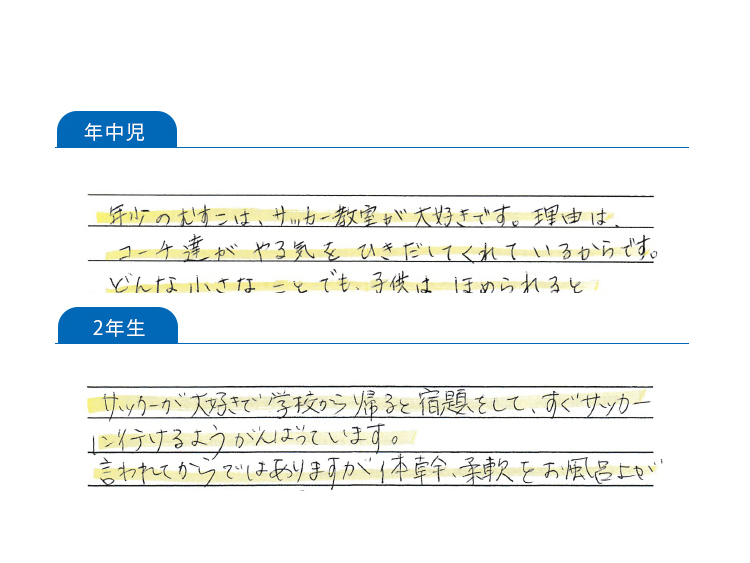 年中児
年少のむすこは、サッカー教室が大好きです。理由は、
コーチ達がやる気をひきだしてくれているからです。
どんな小さなことでも、子供はほめられると
2年生
サッカーが大好きで学校から帰ると宿題をして、すぐサッカー
に行けるようがんばっています。
言われてからではありますが体幹、柔軟をお風呂上が